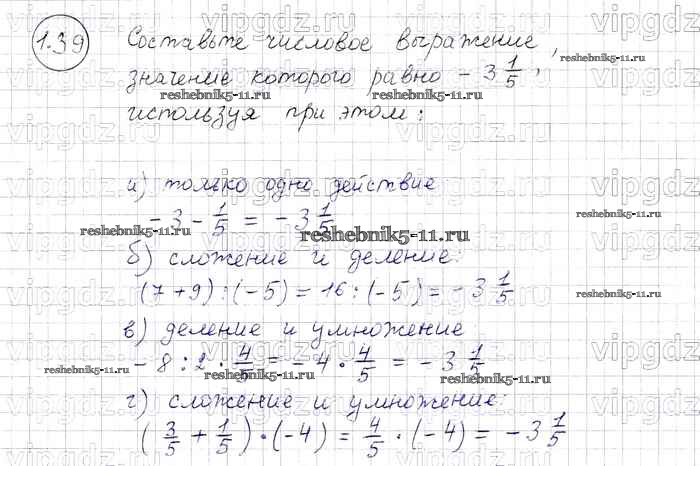 1.39 Составьте числовое выражение,
значение которого равно - 3 1/5,
используя при этом:
а) только одно действие
- 3 - 1/5 = - 3 1/5
б) сложение и деление:
(7 + 9) : (- 5) = 16 : (- 5) = - 3 1/5
в) деление и умножение
- 8 : 2 · 4/5 = - 4 · 4/5 = - 3 1/5
г) сложение и умножение:
( 3/5 + 1/5 ) · (- 4) = 4/5 · (- 4) = - 3 1/5
vipgdz.ru
reshebnik5-11.ru